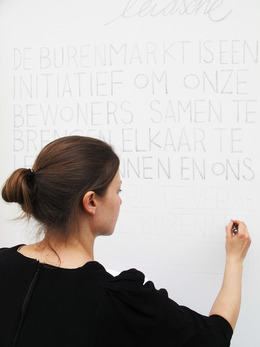 leidsche
DE BURENMARKT IS EEN
INITIATIEF OM ONZE
BEWONERS SAMEN TE
BRENGEN ELKAAR TE
LE NNEN EN ONS